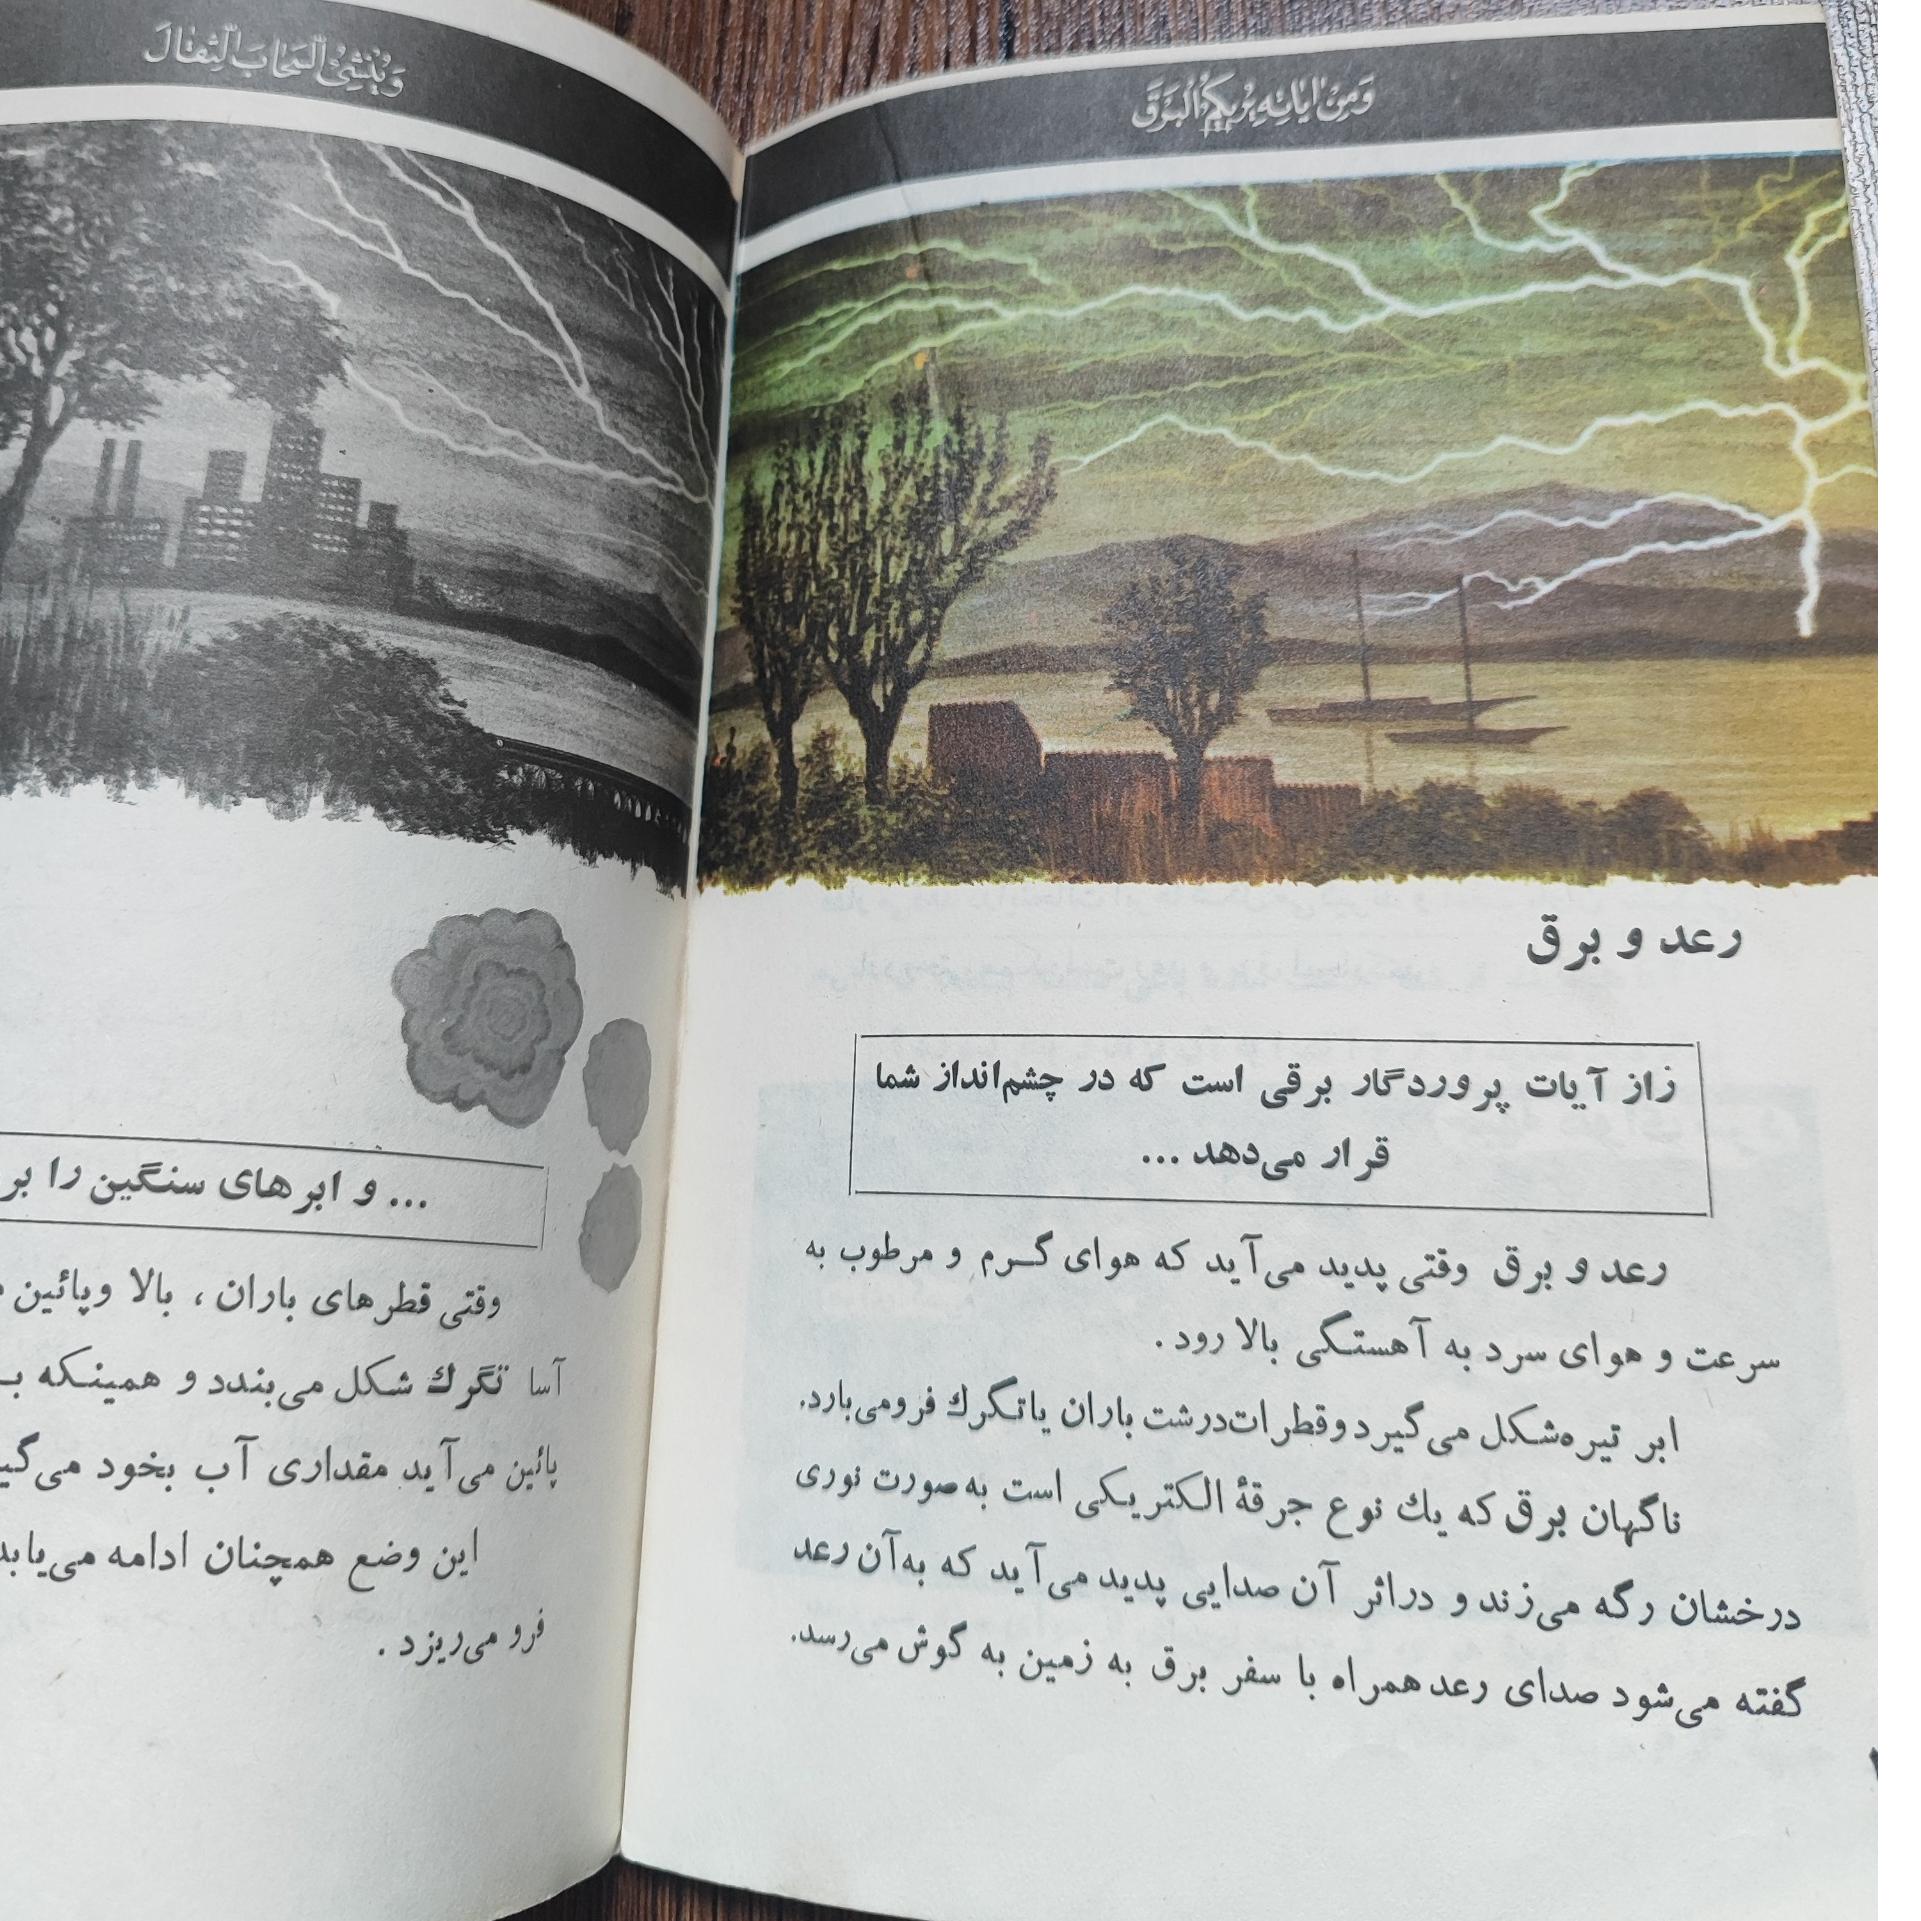 وَمِنْ اٰیاتِهِ یُریکُمُ الْبَرْقَ
رعد و برق
زاز آیات پروردگار برقی است که در چشم‌انداز شما
قرار می‌دهد ...
رعد و برق وقتی پدید می‌آید که هوای گـرم و مرطوب به
سرعت و هوای سرد به آهستگی بالا رود .
ابر تیره‌شکل می‌گیرد وقطرات‌درشت باران یاتگرك فرومی‌بارد.
ناگهان برق که یك نوع جرقۀ الکتریکی است به‌صورت نوری
درخشان رگه می‌زند و دراثر آن صدایی پدید می‌آید که به‌آن رعد
گفته می‌شود صدای رعد همراه با سفر برق به زمین به گوش می‌رسد.
وَیُنْشِیُٔ السَّحٰابَ الثِّقٰالَ
... و ابرهای سنگین را بر
وقتی قطرهای باران ، بالا وپائین
آسا تگرك شکل می‌بندد و همینکه
پائین می‌آید مقداری آب بخود
این وضع همچنان ادامه می‌یابد
فرو می‌ریزد .